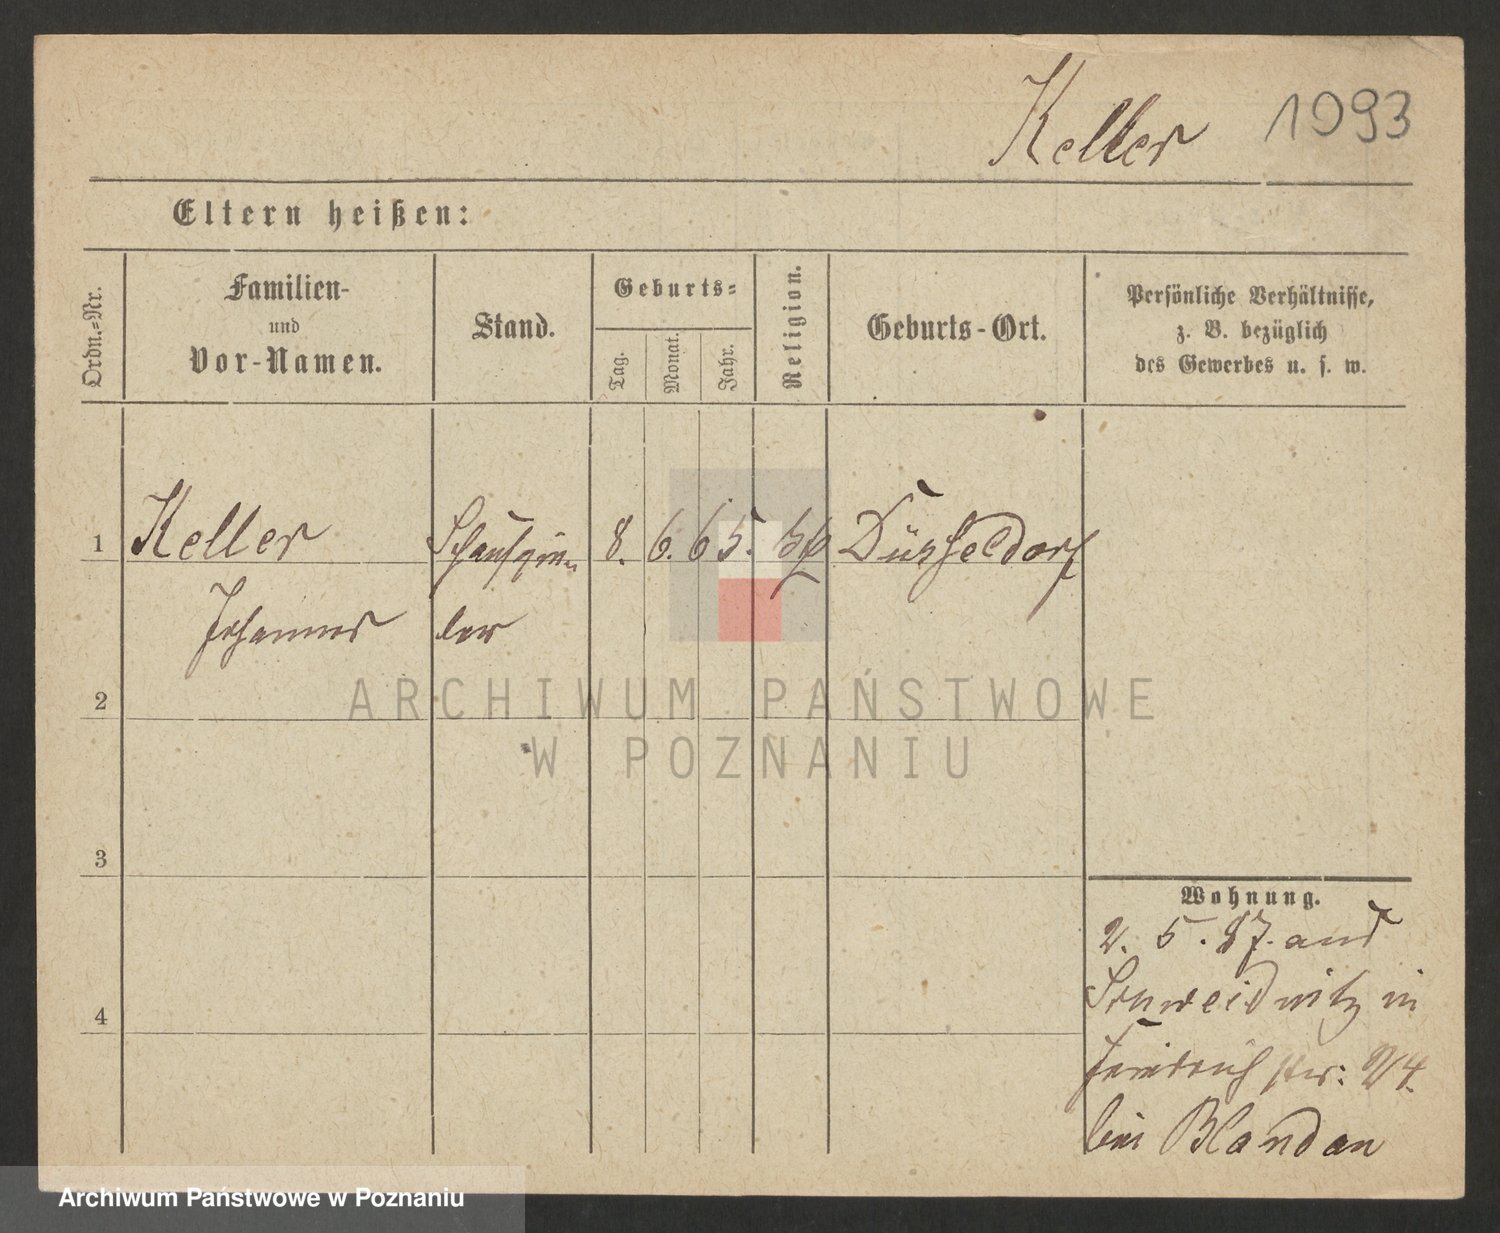 Keller 1093
Eltern heißen:
Ordn.-Nr.
Familien-
und
Vor-Namen.
Stand.
Geburts-
Tag.
Monat.
Jahr.
Religion.
Geburts-Ort.
Persönliche Verhältnisse,
z. B. bezüglich
des Gewerbes u. s. w.
1 Keller Schauspie- 8. 6. 65. Düsseldorf
Johannes ler
2
3
4
Wohnung.
2. 5. 87. aus
Schweidnitz in
Friedrichstr:
bei Blandau
ARCHIWUM PAŃSTWOWE
W POZNANIU
Archiwum Państwowe w Poznaniu